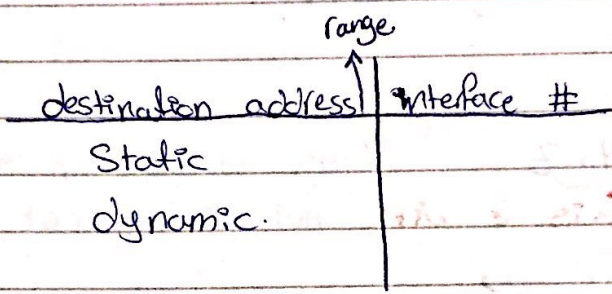 range
destination address interface #
Static
dynamic.